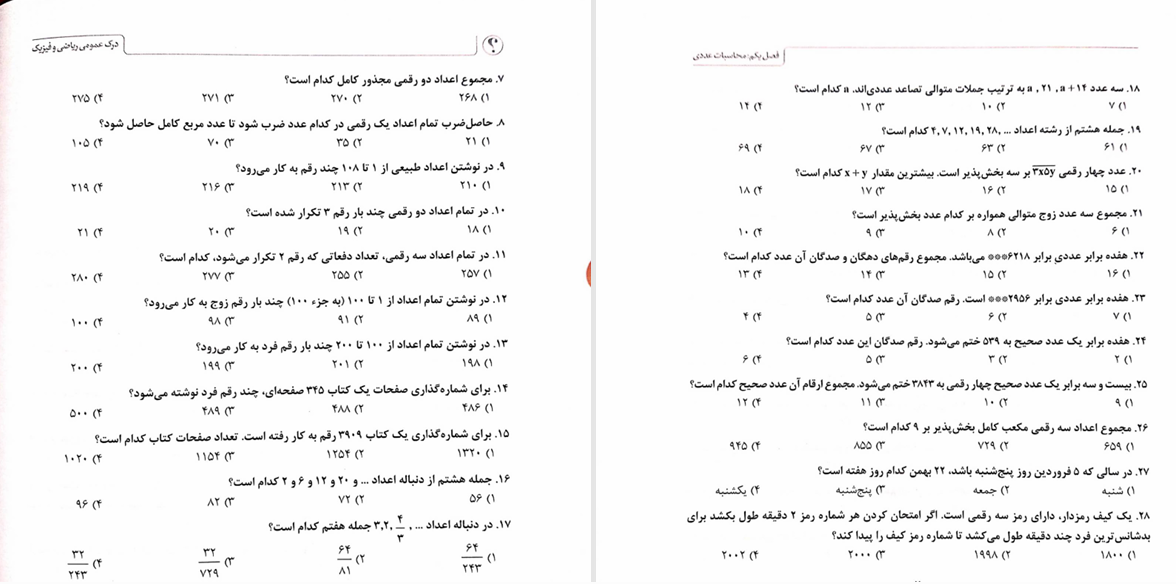 درک عمومی ریاضی و فیزیک
۷. مجموع اعداد دو رقمی مجذور کامل کدام است؟
۱) ۲۶۸ ۲) ۲۷۰ ۳) ۲۷۱ ۴) ۲۷۵
۸. حاصل‌ضرب تمام اعداد یک رقمی در کدام عدد ضرب شود تا عدد مربع کامل حاصل شود؟
۱) ۲۱ ۲) ۳۵ ۳) ۷۰ ۴) ۱۰۵
۹. در نوشتن اعداد طبیعی از ۱ تا ۱۰۸ چند رقم به کار می‌رود؟
۱) ۲۱۰ ۲) ۲۱۳ ۳) ۲۱۶ ۴) ۲۱۹
۱۰. در تمام اعداد دو رقمی چند بار رقم ۳ تکرار شده است؟
۱) ۱۸ ۲) ۱۹ ۳) ۲۰ ۴) ۲۱
۱۱. در تمام اعداد سه رقمی، تعداد دفعاتی که رقم ۲ تکرار می‌شود، کدام است؟
۱) ۲۵۷ ۲) ۲۵۵ ۳) ۲۷۷ ۴) ۲۸۰
۱۲. در نوشتن تمام اعداد از ۱ تا ۱۰۰ (به جزء ۱۰۰) چند بار رقم زوج به کار می‌رود؟
۱) ۸۹ ۲) ۹۱ ۳) ۹۸ ۴) ۱۰۰
۱۳. در نوشتن تمام اعداد از ۱۰۰ تا ۲۰۰ چند بار رقم فرد به کار می‌رود؟
۱) ۱۹۸ ۲) ۲۰۱ ۳) ۱۹۹ ۴) ۲۰۰
۱۴. برای شماره‌گذاری صفحات یک کتاب ۳۴۵ صفحه‌ای، چند رقم فرد نوشته می‌شود؟
۱) ۴۸۶ ۲) ۴۸۸ ۳) ۴۸۹ ۴) ۵۰۰
۱۵. برای شماره‌گذاری یک کتاب ۳۹۰۹ رقم به کار رفته است. تعداد صفحات کتاب کدام است؟
۱) ۱۳۲۰ ۲) ۱۲۵۴ ۳) ۱۱۵۴ ۴) ۱۰۲۰
۱۶. جمله هشتم از دنباله اعداد ... و ۲۰ و ۱۲ و ۶ و ۲ کدام است؟
۱) ۵۶ ۲) ۷۲ ۳) ۸۲ ۴) ۹۶
۱۷. در دنباله اعداد ... , ۴/۳ , ۳,۲ جمله هفتم کدام است؟
۱) ۶۴/۲۴۳ ۲) ۶۴/۸۱ ۳) ۳۲/۷۲۹ ۴) ۳۲/۲۴۳
فصل یکم: محاسبات عددی
۱۸. سه عدد a , ۲۱ , a+۱۴ به ترتیب جملات متوالی تصاعد عددی‌اند. a کدام است؟
۱) ۷ ۲) ۱۰ ۳) ۱۲ ۴) ۱۴
۱۹. جمله هشتم از رشته اعداد ... ,۴, ۷, ۱۲, ۱۹, ۲۸ کدام است؟
۱) ۶۱ ۲) ۶۳ ۳) ۶۷ ۴) ۶۹
۲۰. عدد چهار رقمی ۳x۵y بر سه بخش‌پذیر است. بیشترین مقدار x + y کدام است؟
۱) ۱۵ ۲) ۱۶ ۳) ۱۷ ۴) ۱۸
۲۱. مجموع سه عدد زوج متوالی همواره بر کدام عدد بخش‌پذیر است؟
۱) ۶ ۲) ۸ ۳) ۹ ۴) ۱۰
۲۲. هفده برابر عددی برابر ۶۲۱۸*** می‌باشد. مجموع رقم‌های دهگان و صدگان آن عدد کدام است؟
۱) ۱۶ ۲) ۱۵ ۳) ۱۴ ۴) ۱۳
۲۳. هفده برابر عددی برابر ۲۹۵۶*** است. رقم صدگان آن عدد کدام است؟
۱) ۷ ۲) ۶ ۳) ۵ ۴) ۴
۲۴. هفده برابر یک عدد صحیح به ۵۳۹ ختم می‌شود. رقم صدگان این عدد کدام است؟
۱) ۲ ۲) ۳ ۳) ۵ ۴) ۶
۲۵. بیست و سه برابر یک عدد صحیح چهار رقمی به ۳۸۴۳ ختم می‌شود. مجموع ارقام آن عدد صحیح کدام است؟
۱) ۹ ۲) ۱۰ ۳) ۱۱ ۴) ۱۲
۲۶. مجموع اعداد سه رقمی مکعب کامل بخش‌پذیر بر ۹ کدام است؟
۱) ۶۵۹ ۲) ۷۲۹ ۳) ۸۵۵ ۴) ۹۴۵
۲۷. در سالی که ۵ فروردین روز پنج‌شنبه باشد، ۲۲ بهمن کدام روز هفته است؟
۱) شنبه ۲) جمعه ۳) پنج‌شنبه ۴) یکشنبه
۲۸. یک کیف رمزدار، دارای رمز سه رقمی است. اگر امتحان کردن هر شماره رمز ۲ دقیقه طول بکشد برای
بدشانس‌ترین فرد چند دقیقه طول می‌کشد تا شماره رمز کیف را پیدا کند؟
۱) ۱۸۰۰ ۲) ۱۹۹۸ ۳) ۲۰۰۰ ۴) ۲۰۰۲